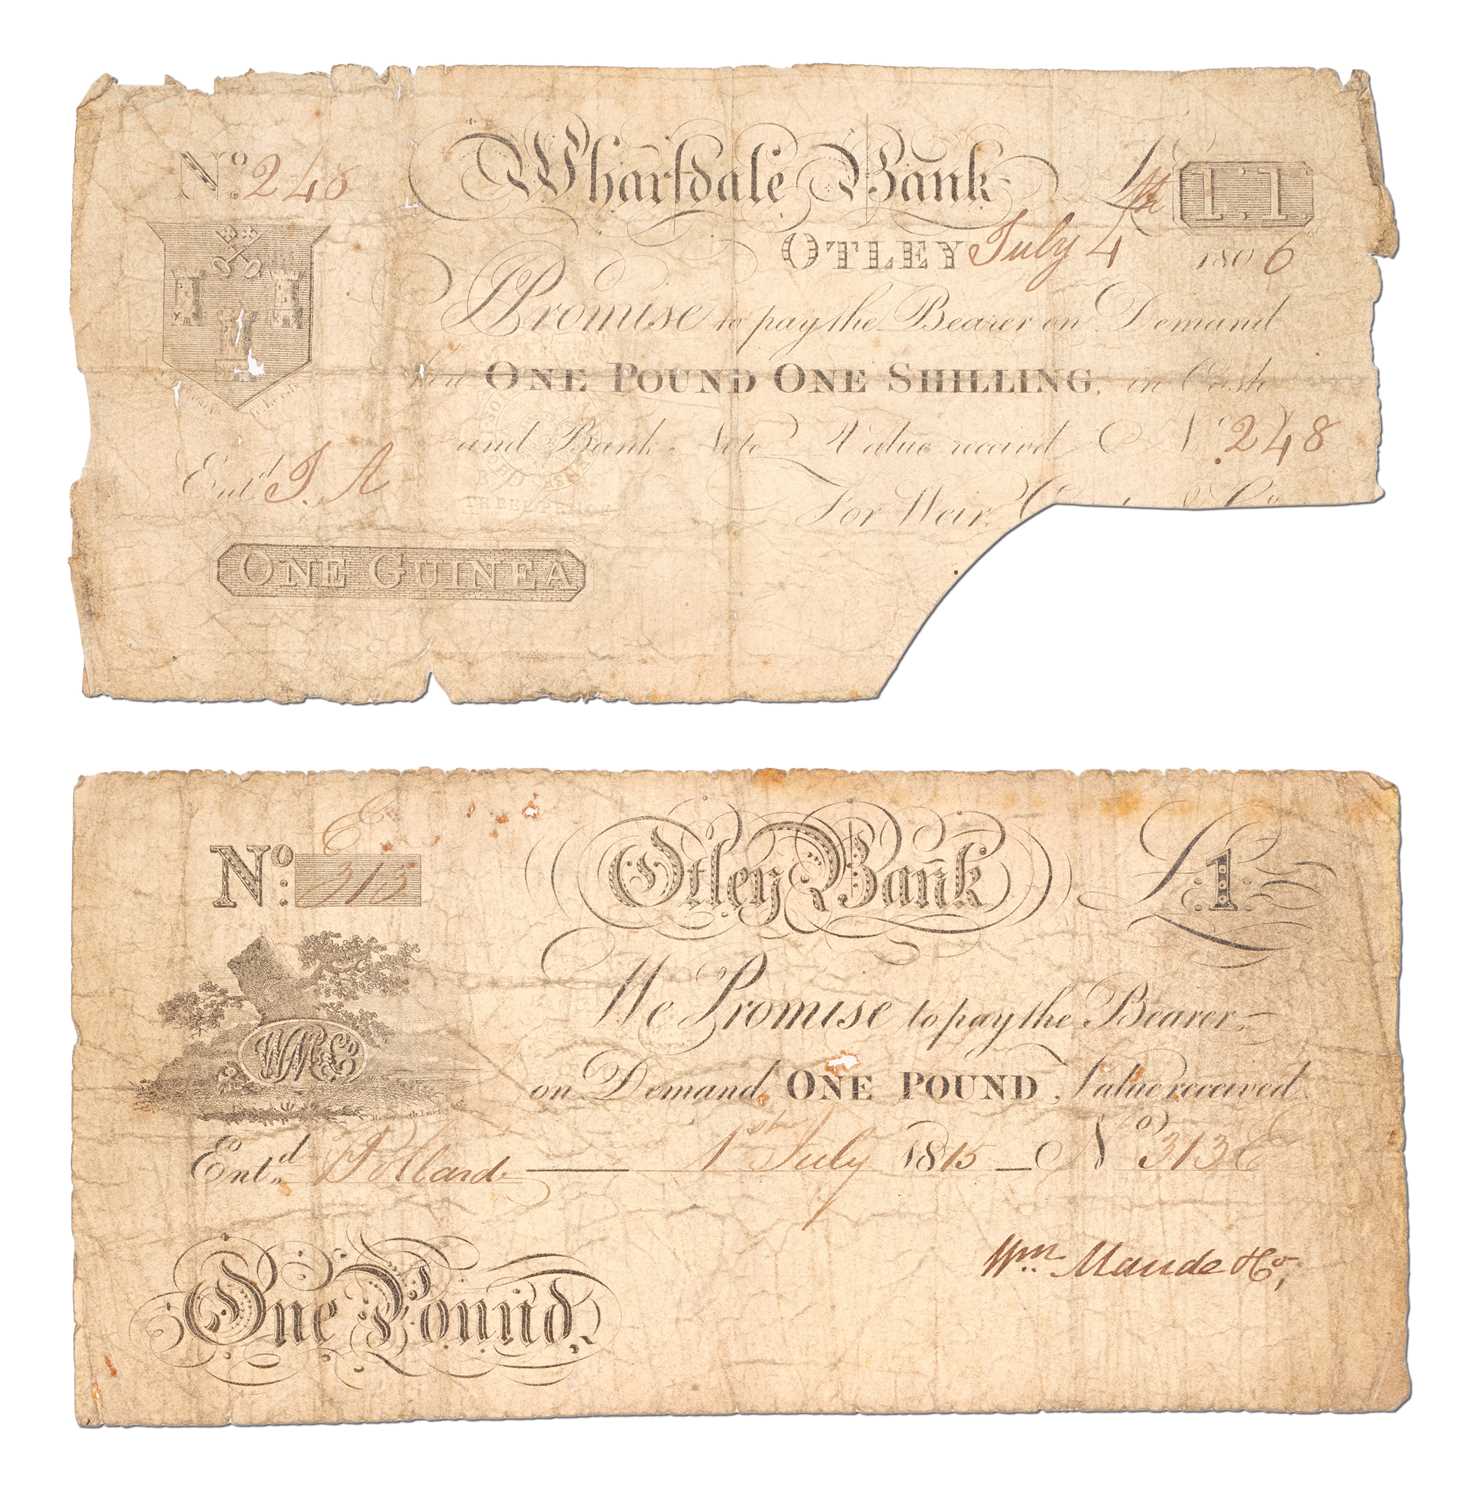 No. 248 Wharfdale Bank £ 1:1
OTLEY July 4 1806
I Promise to pay the Bearer on Demand
ONE POUND ONE SHILLING, in Cash
and Bank Note Value received No. 248
Entd. J. A
For Weir,
THREEPENCE
ONE GUINEA
E
No. 313 Otley Bank £1
We Promise to pay the Bearer
W M & Co
on Demand, ONE POUND, Value received
Entd. Pollard 1st July 1815 No 313 E
Wm. Maude & Co,
One Pound